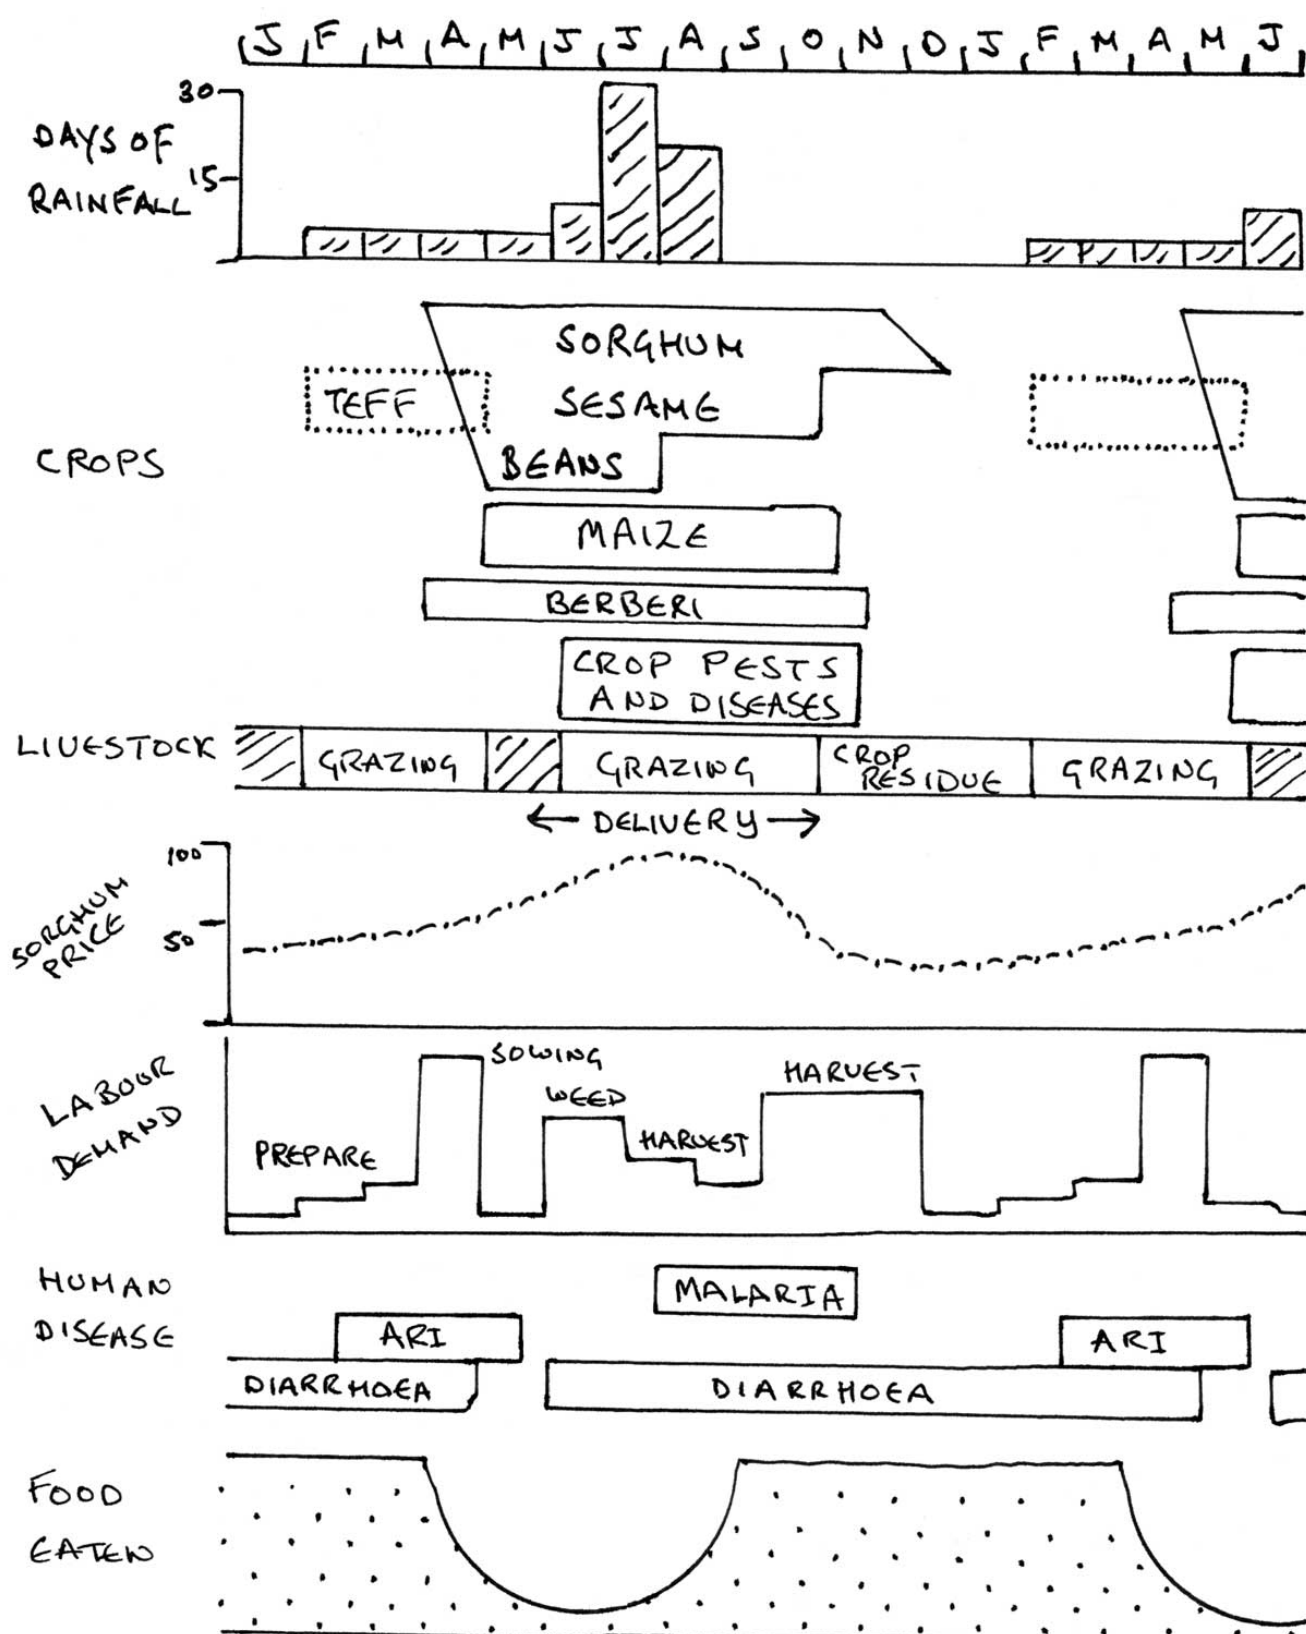 J F M A M J J A S O N D J F M A M J
30
DAYS OF
15
RAINFALL
SORGHUM
TEFF SESAME
CROPS BEANS
MAIZE
BERBERI
CROP PESTS
AND DISEASES
LIVESTOCK GRAZING GRAZING CROP
RESIDUE GRAZING
← DELIVERY →
100
SORGHUM
PRICE
50
LABOUR
DEMAND
SOWING
WEED
HARVEST
HARVEST
PREPARE
HUMAN
DISEASE
MALARIA
ARI ARI
DIARRHOEA DIARRHOEA
FOOD
EATEN